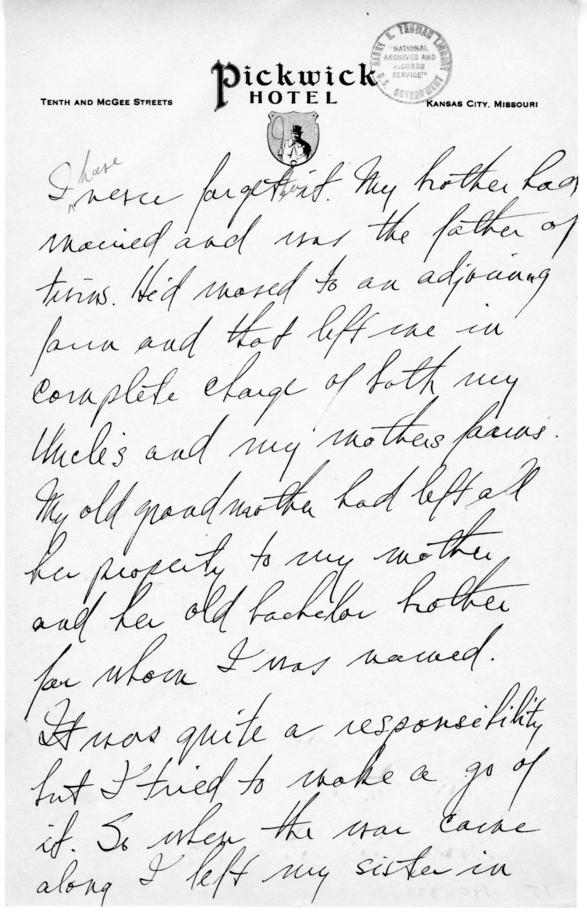 HARRY S. TRUMAN LIBRARY
"NATIONAL
ARCHIVES AND
RECORDS
SERVICE"
U.S. GOVERNMENT
Pickwick
HOTEL
TENTH AND MCGEE STREETS
KANSAS CITY, MISSOURI
have
I never forgotten it. My brother had
married and was the father of
twins. He'd moved to an adjoining
farm and that left me in
complete charge of both my
Uncle's and my mothers farms.
My old grandmother had left all
her property to my mother
and her old bachelor brother
for whom I was named.
It was quite a responsibility
but I tried to make a go of
it. So when the war came
along I left my sister in